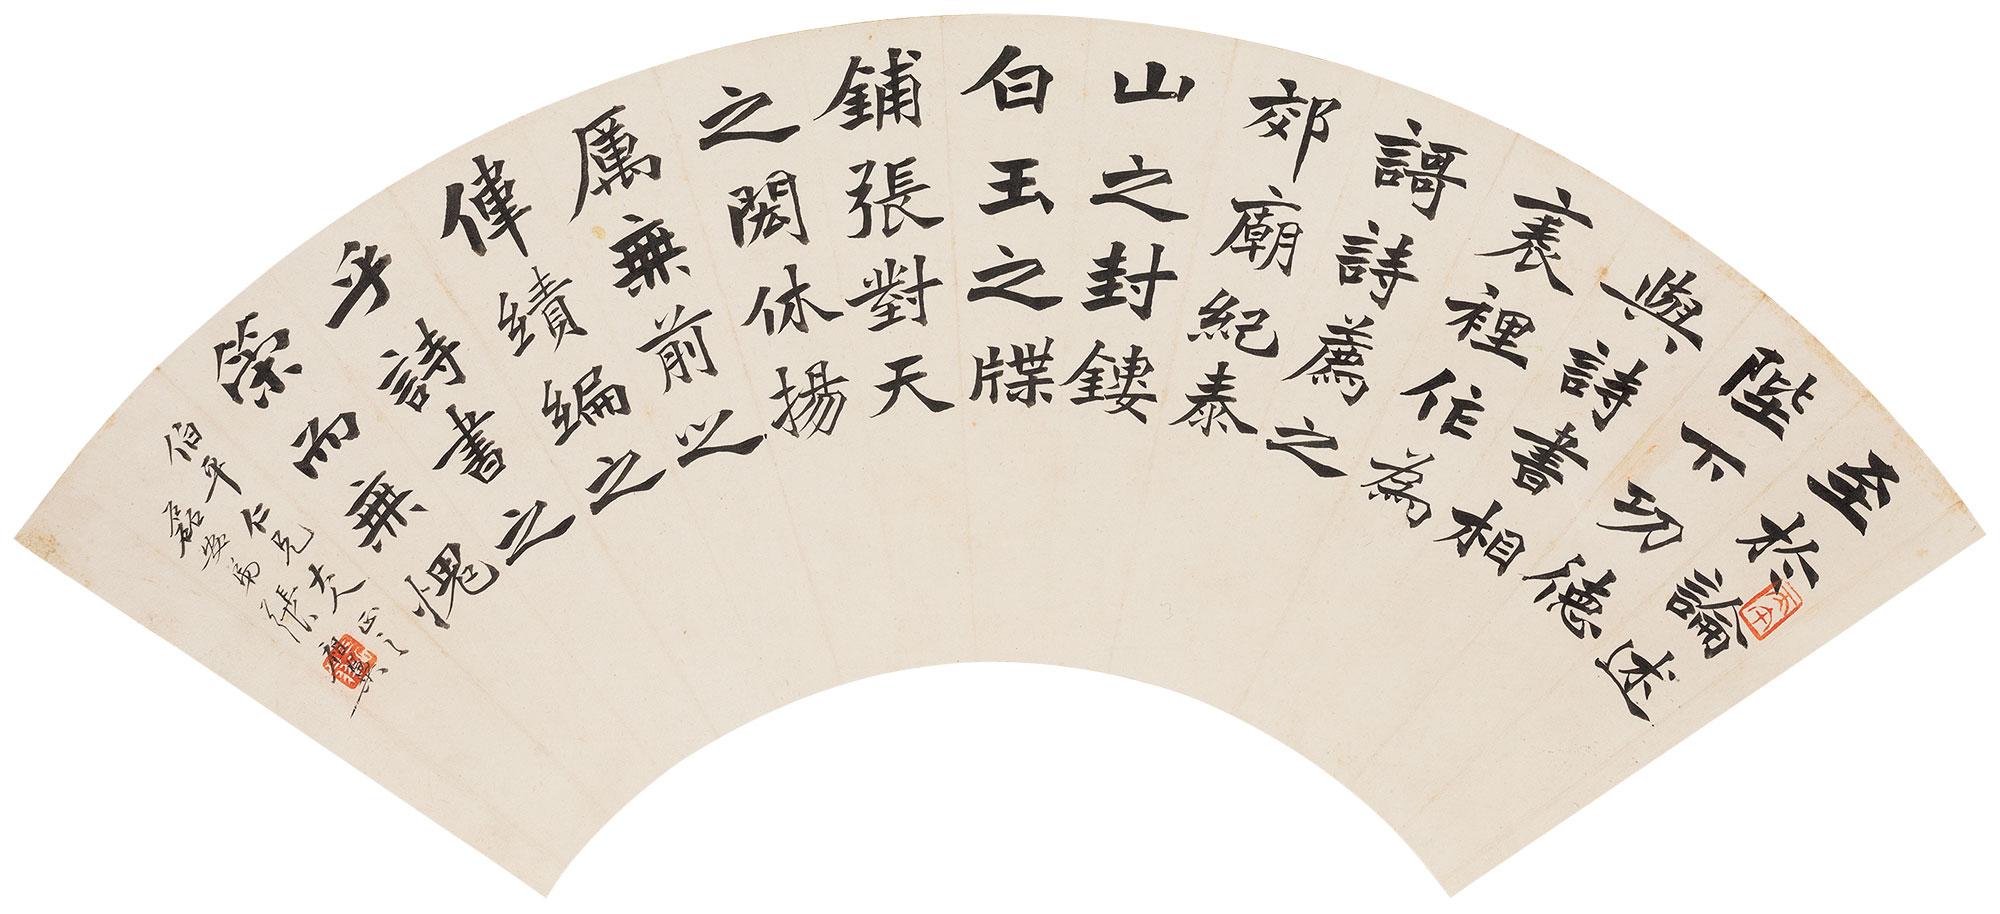 至於論述
陛下功德
與詩書相
表裡作為
謌詩薦之
郊廟紀泰
山之封鏤
白玉之牒
鋪張對天
之閎休揚
厲無前之
偉績編之
乎詩書之
策而無愧
伯平仁兄大人正之
磊盦弟張祖翼